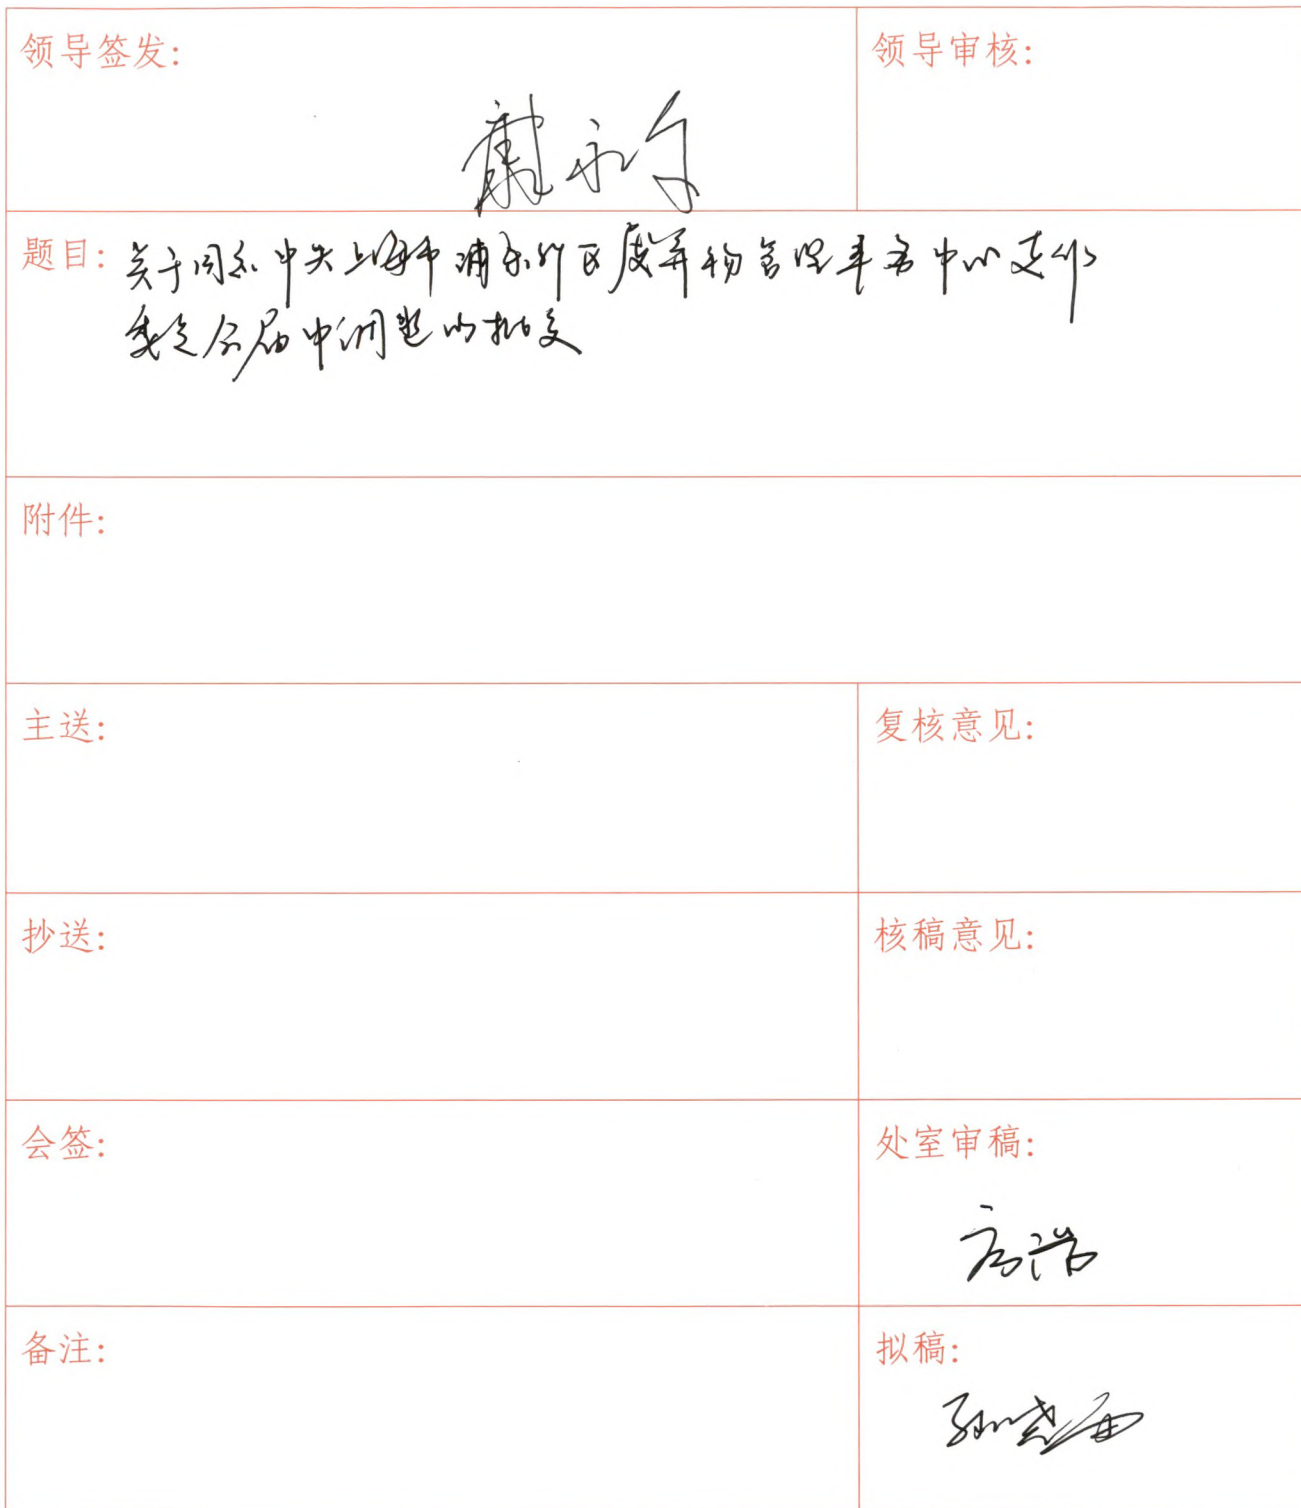 领导签发:
领导审核:
题目: 关于同意中共上海市浦东新区废弃物管理事务中心支部
委员会届中调整的批复
附件:
主送:
复核意见:
抄送:
核稿意见:
会签:
处室审稿:
高浩
备注:
拟稿: